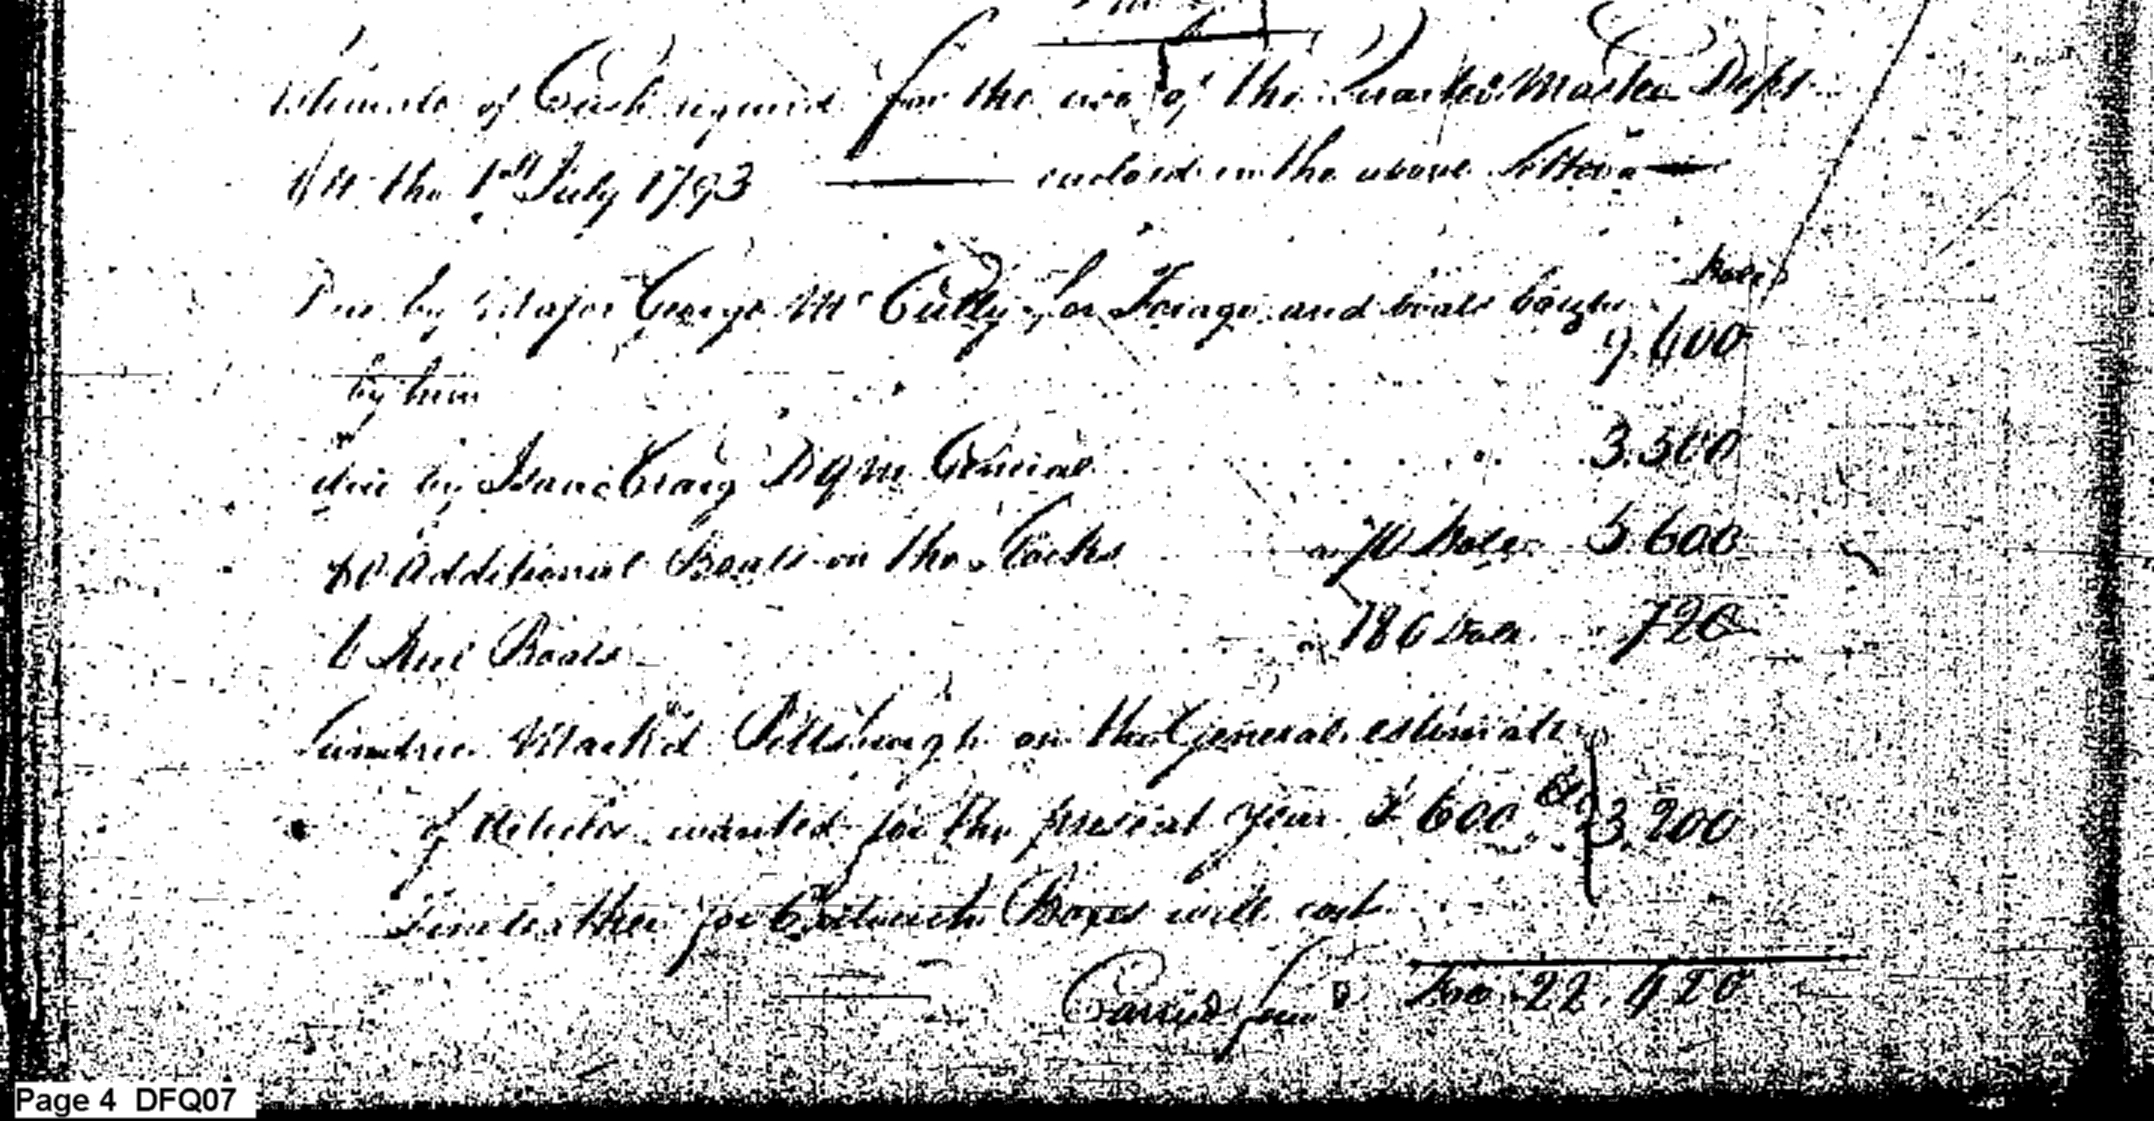 Estimate of Cash required for the use of the Quarter Master Dept
the 1st July 1793 —— enclosed in the above letter —
Dolls
Due by Major George McCully for Forage and boats bought
9.400
by him
due by Isaac Craig D Q M General 3.500
80 Additional Boats on the Stocks a 70 Dolls 5.600
6 Keel Boats a 120 Dolls 720
Sundries Mark'd Pittsburgh on the General estimate
of articles wanted for the present year £ 600 3.200
for Cartouch Boxes will cost
Carried 22.420
Page 4 DFQ07